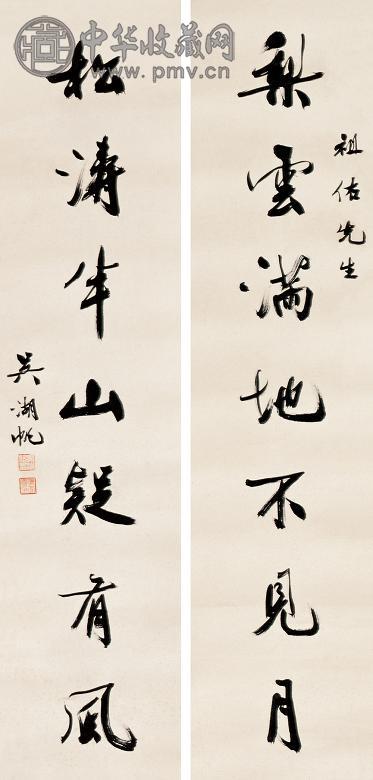 中华收藏网
www.pmv.cn
祖佑先生
梨雲滿地不見月
松濤半山疑有風
吳湖帆